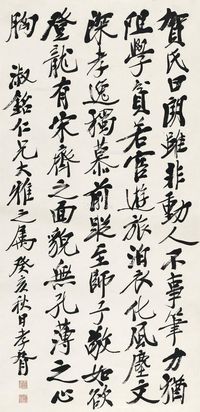 賀氏日閑雖非動人不事筆力猶
阻學貢若宦遊旅泊衣化風塵文
深孝逸獨慕前蹤至師子敬如欲
登龍有宋齊之面貌無孔薄之心
胸
淑銘仁兄大雅之屬 癸亥秋日孝胥